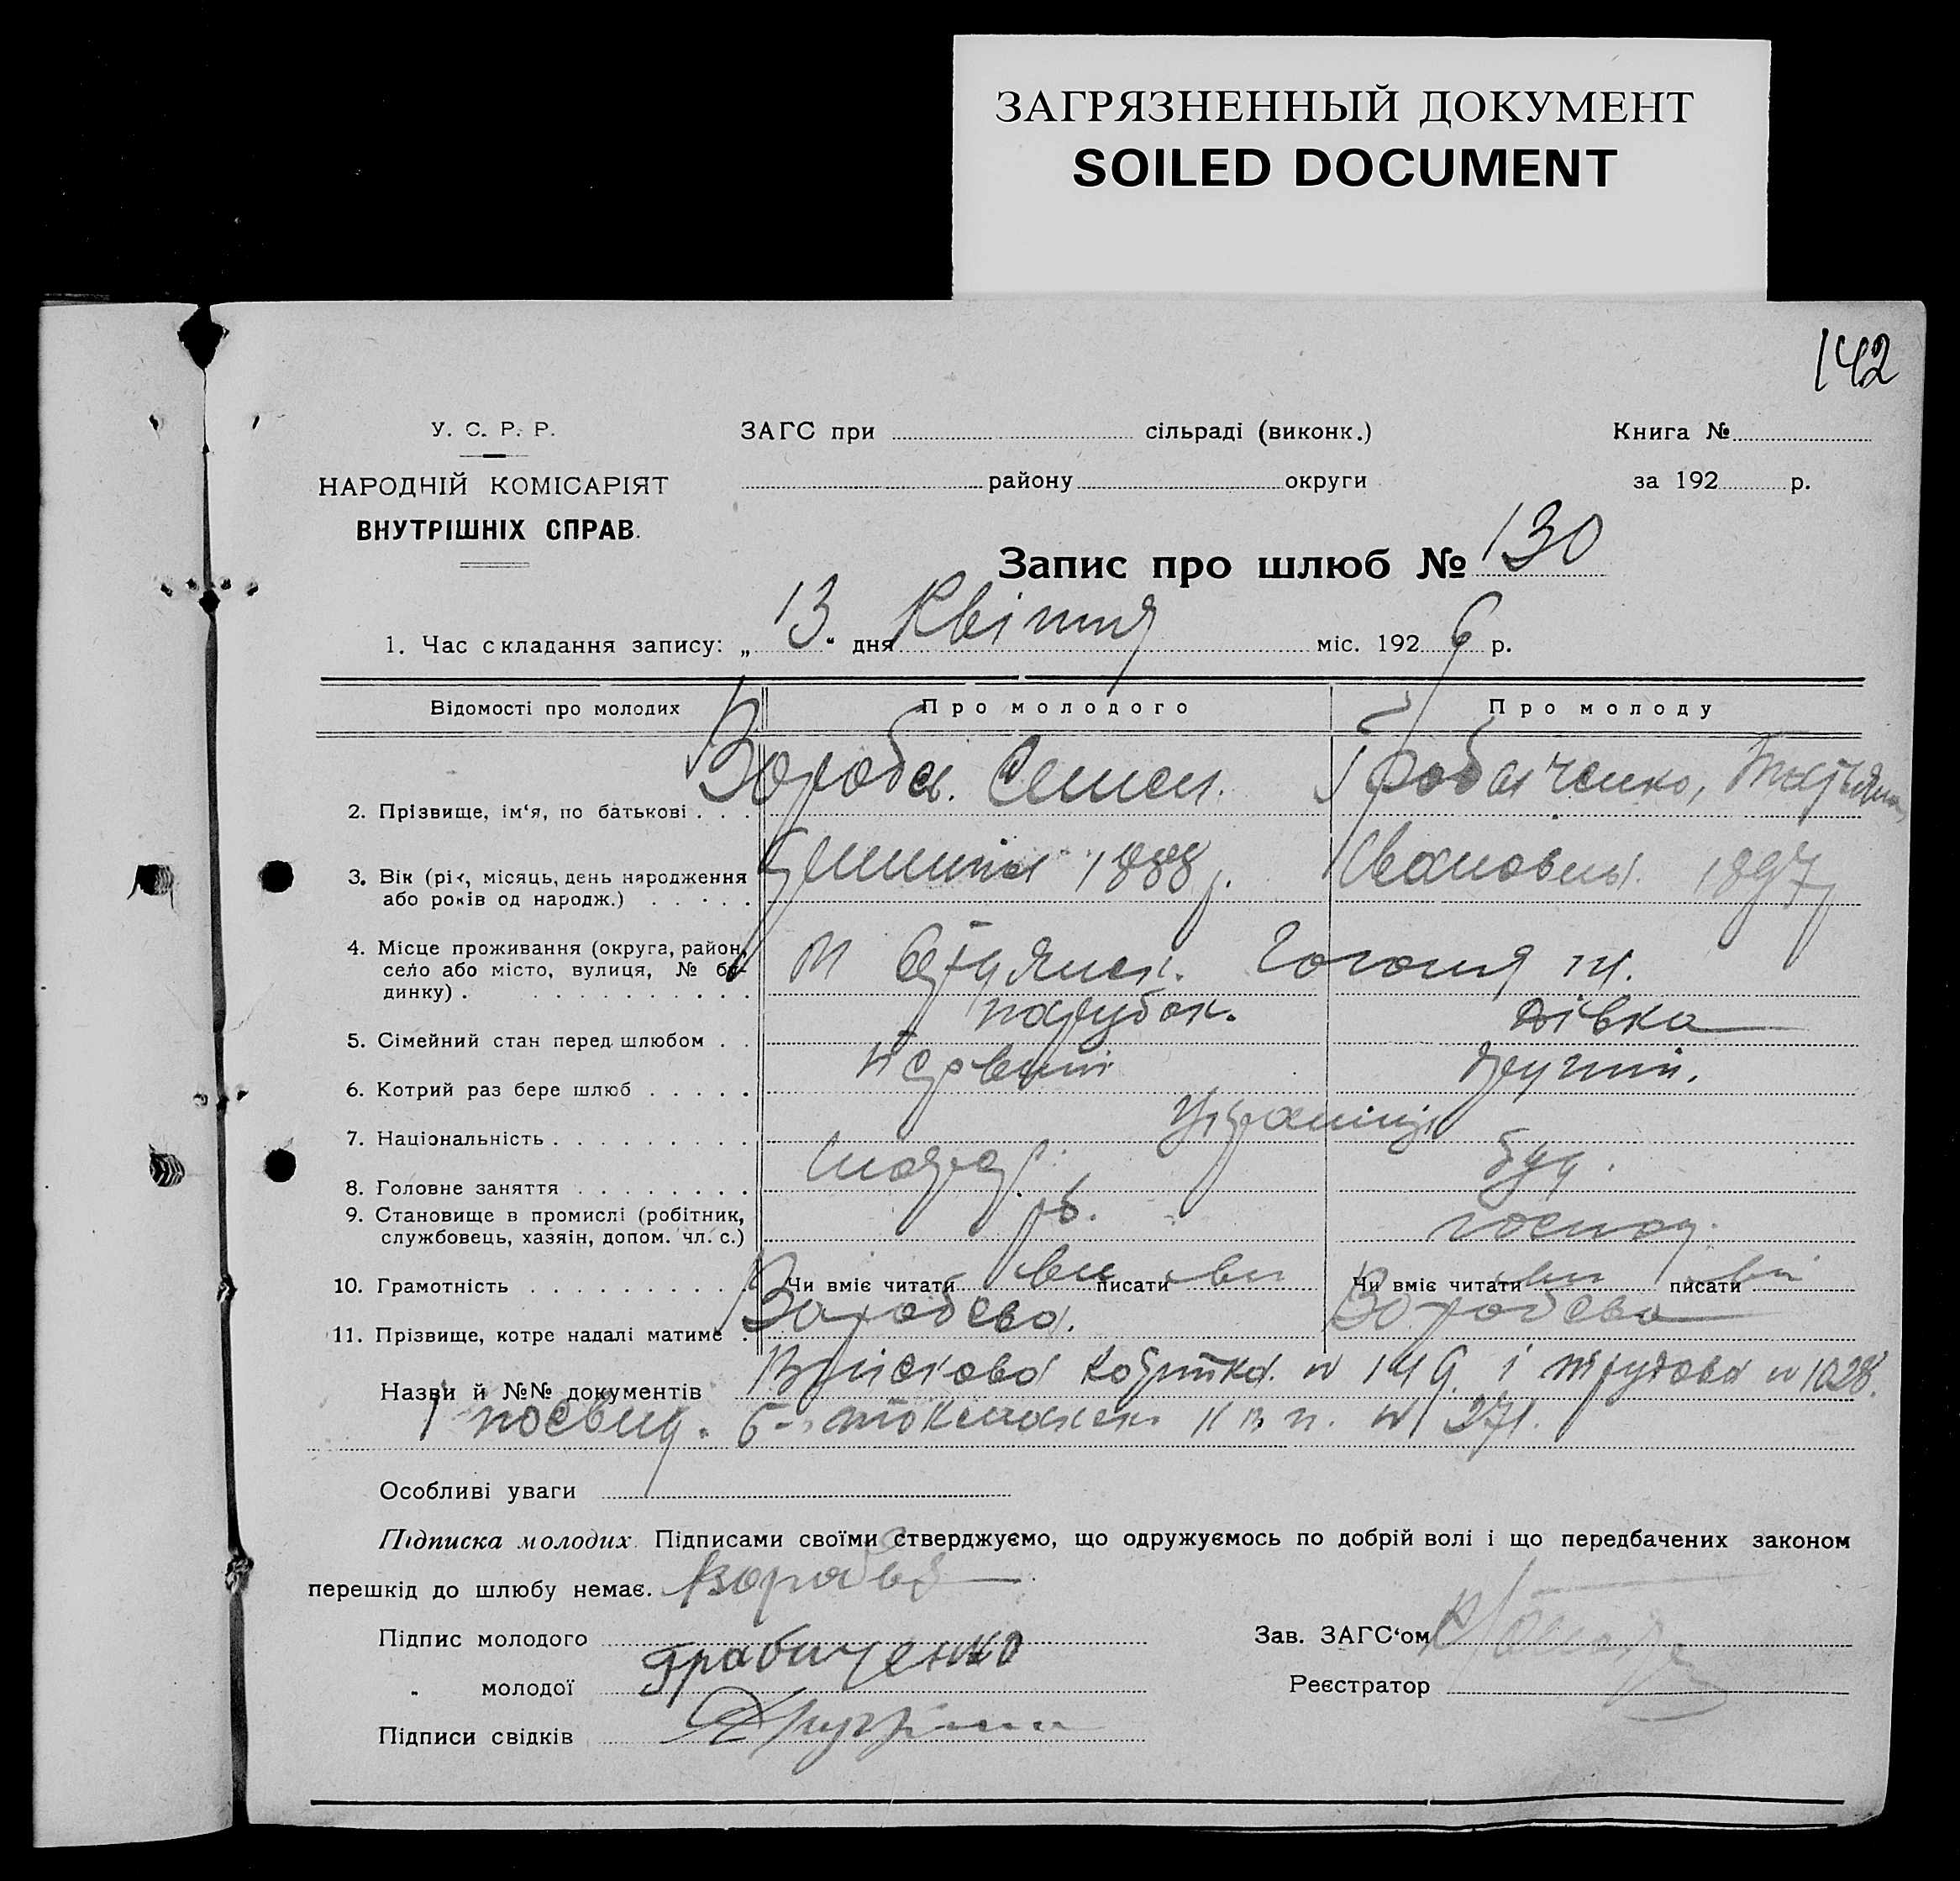 ЗАГРЯЗНЕННЫЙ ДОКУМЕНТ
SOILED DOCUMENT
142
У. С. Р. Р.
НАРОДНІЙ КОМІСАРІЯТ
ВНУТРІШНІХ СПРАВ.
ЗАГС при сільраді (виконк.)
району округи
Книга №
за 192 р.
Запис про шлюб № 130
1. Час складання запису: „ 13 " дня Квітня міс. 192 6 р.
Відомості про молодих Про молодого Про молоду
2. Прізвище, ім‘я, по батькові . . . Вороба Семен
3. Вік (рік, місяць, день народження
або років од народж.) . . . . . 1888 р. Івановна 1897 р
4. Місце проживання (округа, район,
село або місто, вулиця, № бу-
динку) . . . . . . . . . . . Гоголя
5. Сімейний стан перед шлюбом . . парубок. дівка
6. Котрий раз бере шлюб . . . . . первий другий.
7. Національність . . . . . . . . . Українці
8. Головне заняття . . . . . . . .
9. Становище в промислі (робітник,
службовець, хазяін, допом. чл. с.) рб. господ.
10. Грамотність . . . . . . . . . . Чи вміє читати вм писати вм Чи вміє читати вм писати вм
11. Прізвище, котре надалі матиме . Воробєва. Воробєва
Назви й №№ документів Військова № 149. і трудова № 1028.
і посвид. № 271.
Особливі уваги
Підписка молодих. Підписами своїми стверджуємо, що одружуємось по добрій волі і що передбачених законом
перешкід до шлюбу немає.
Підпис молодого
" молодої Грабиченко
Підписи свідків
Зав. ЗАГС‘ом
Реєстратор